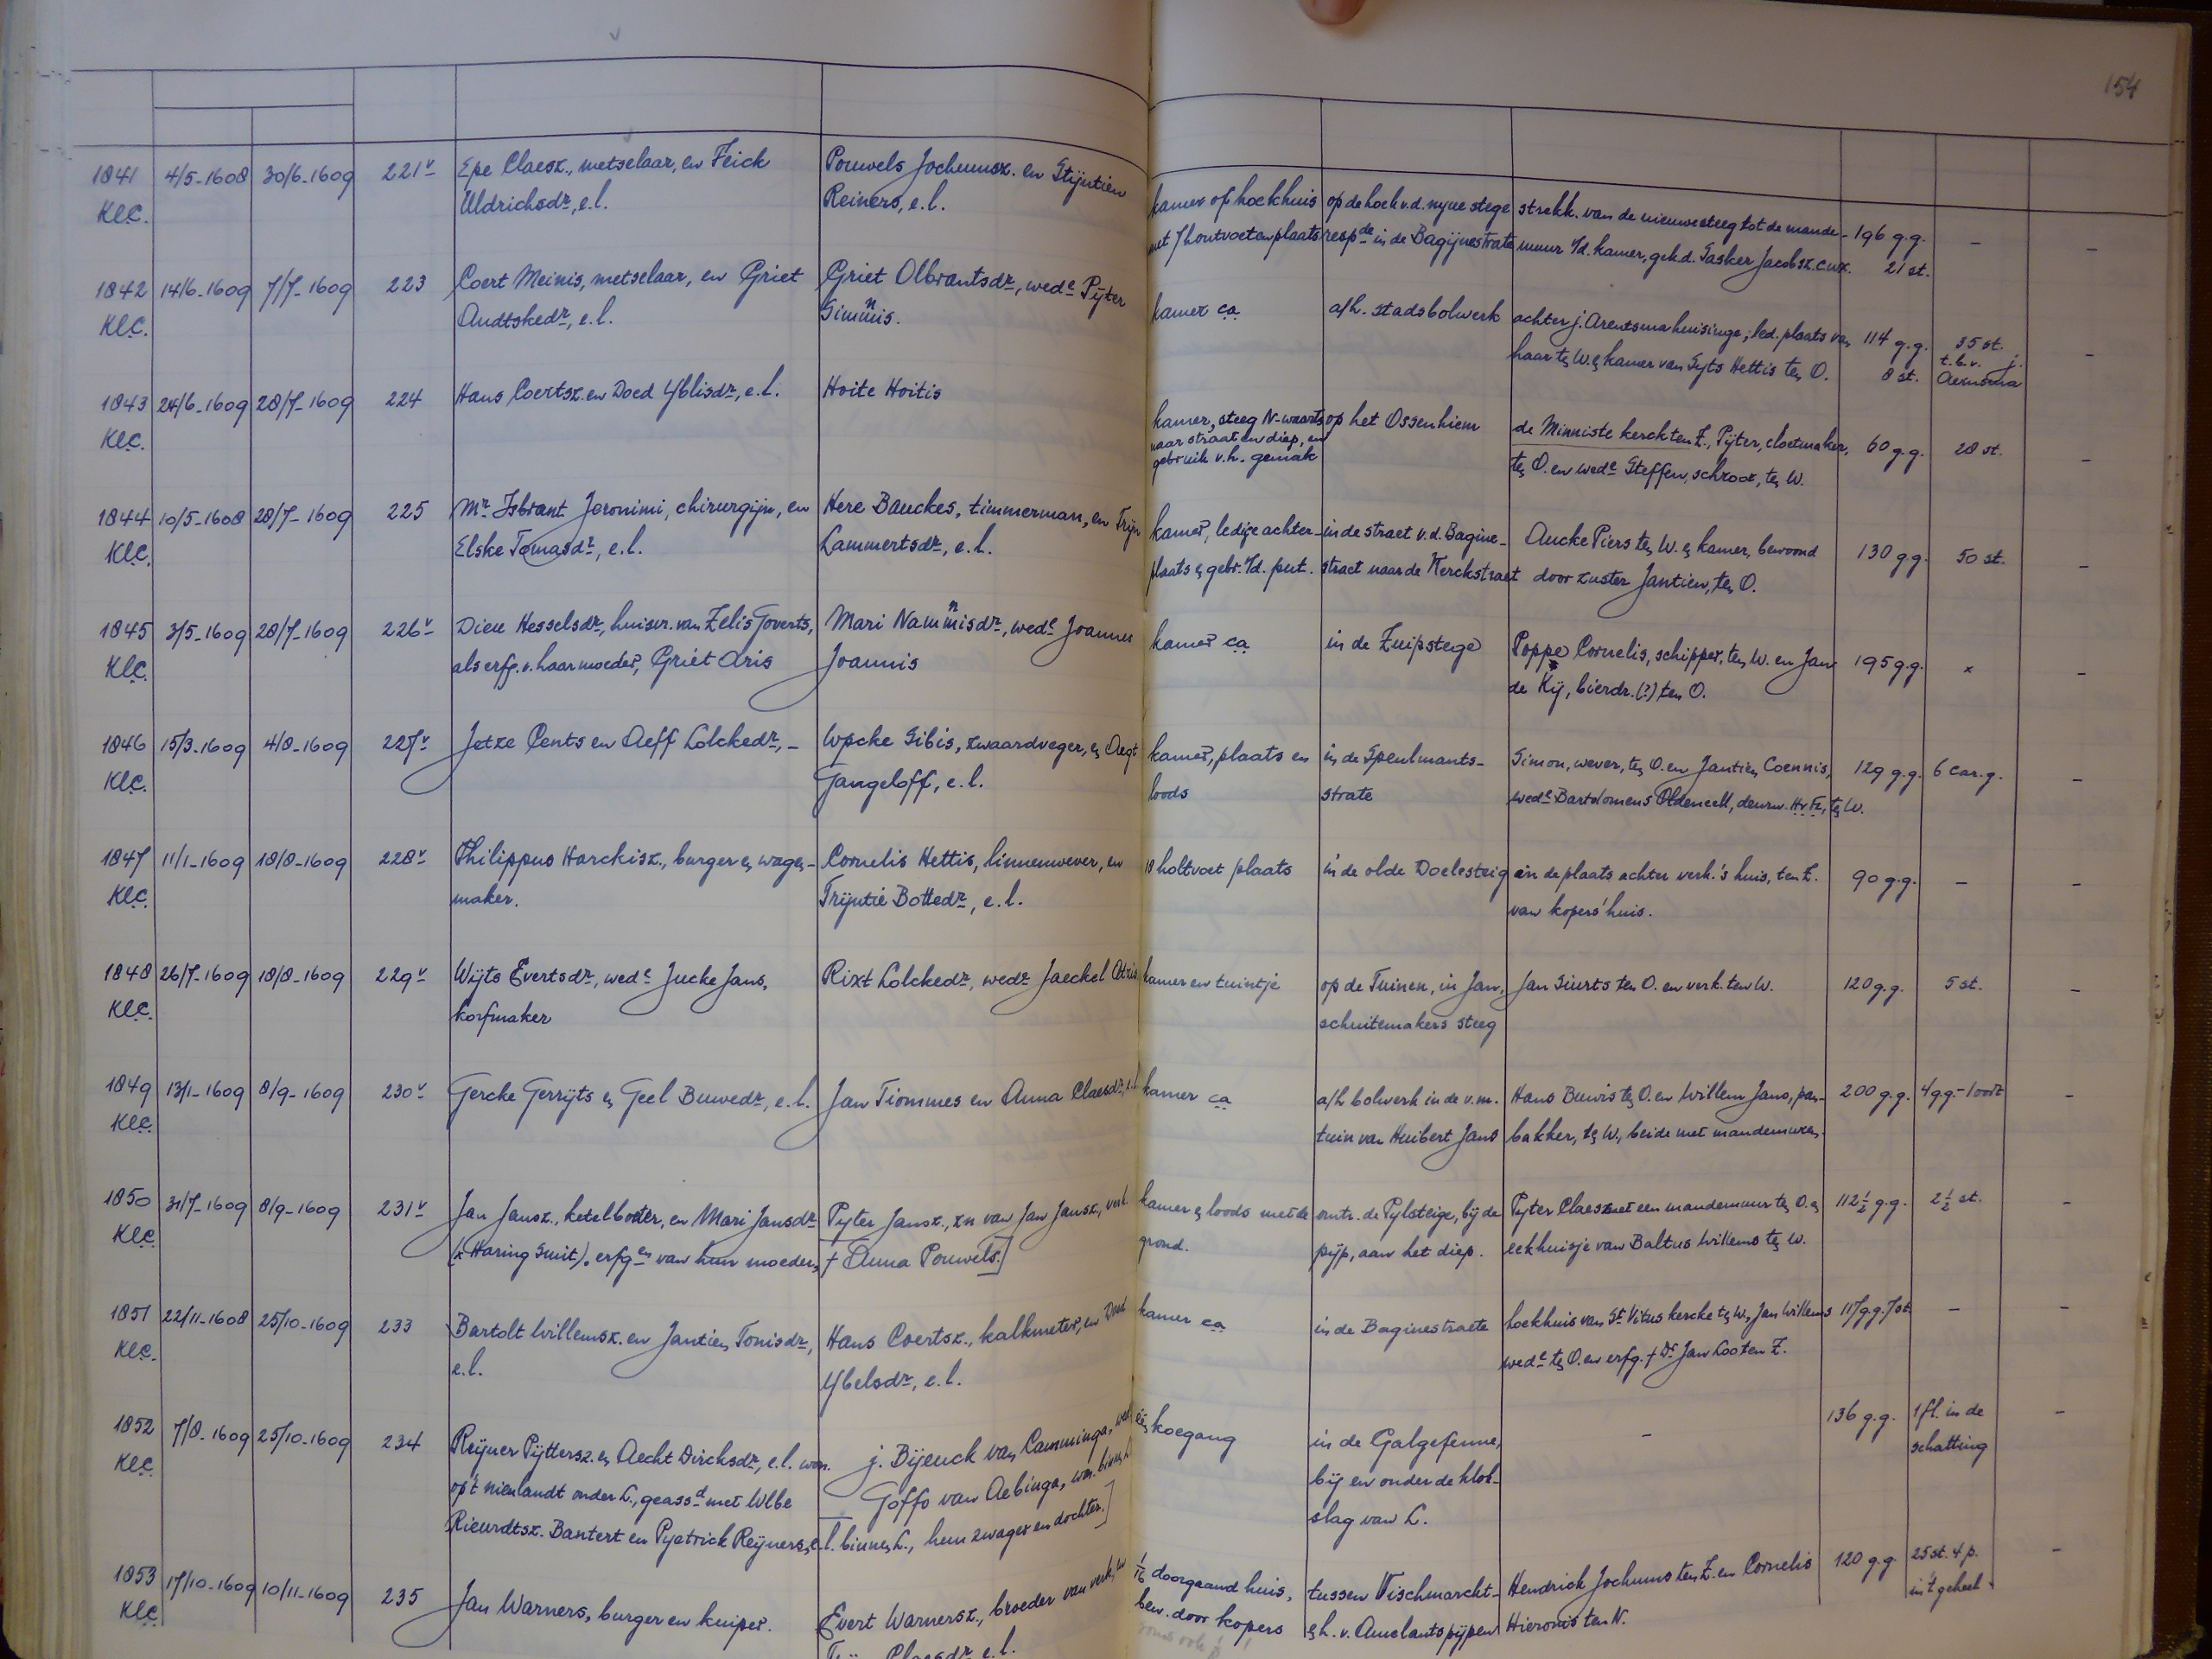 154
1841 4/5-1608 30/6-1609 221v Epe Claesz., metselaar, en Feick Pouwels Jochumsz. en Stijntien kamer of hoekhuis op de hoek v.d. nyue stege strekk. van de nieuwesteeg tot de mande- 196 g.g. - -
Klc. Uldrichsdr, e.l. Reiners, e.l. met 7 houtvoeten plaats respde in de Bagijnestrate muur v/d. kamer, geh.d. Gasker Jacobsz. c.ux. 21 st.
1842 14/6-1609 7/7-1609 223 Coert Meinis, metselaar, en Griet Griet Olbrantsdr, wede Pijter kamer ca a/h. stadsbolwerk achter j. Arentsma huisinge; led. plaats van 114 g.g. 35 st. -
Klc. Andtskedr, e.l. Simnis. haar ten W. en kamer van Syts Hettis ten O. 8 st. t.b.v. j.
Aernsma
1843 24/6-1609 28/7-1609 224 Hans Coertsz. en Doed Yblisdr, e.l. Hoite Hoitis kamer, steeg N-waarts op het Ossenhiem de Minniste kerck ten Z., Pijter, cloetmaker, 60 g.g. 28 st. -
Klc. naar straat en diep, en ten O. en wede Steffen, schroor, ten W.
gebruik v.h. gemak
1844 10/5-1608 28/7-1609 225 Mr Isbrant Jeronimi, chirurgijn, en Here Bauckes, timmerman, en Trijn kamer, ledige achter- in de straet v.d. Bagine- Aucke Piers ten W. en kamer, bewoond 130 g.g. 50 st. -
Klc. Elske Tomasdr, e.l. Lammertsdr, e.l. plaats en gebr. v/d. put. straet naar de Kerckstraet door zuster Jantien, ten O.
1845 3/5-1609 28/7-1609 226v Dieu Hesselsdr, huisvr. van Zelis Goverts, Mari Nammisdr, wede Joannes kamer ca in de Zuipstege Poppe Cornelis, schipper, ten W. en Jan 195 g.g. x -
Klc. als erfg. v. haar moeder, Griet Aris Joannis de Kij, bierdr. (?) ten O.
1846 15/3-1609 4/8-1609 227v Jetze Cents en Aeff Lolckedr, - Wpcke Sibis, zwaardveger, en Aegt kamer, plaats en in de Speulmants- Simon, wever, ten O. en Jantien Coennis, 129 g.g. 6 car.g. -
Klc. Gangeloff, e.l. loods strate wede Bartolomeus Oldeneell, deurw. Hv Fr, ten W.
1847 11/1-1609 18/8-1609 228v Philippus Harckisz., burger en wagen- Cornelis Hettis, linnenwever, en 18 holtvoet plaats in de olde Doelesteig in de plaats achter verk.'s huis, ten Z. 90 g.g. - -
Klc. maker. Trijntie Bottedr, e.l. van kopers' huis.
1848 26/7-1609 18/8-1609 229v Wijts Evertsdr, wede Jucke Jans, Rixt Lolckedr, wedr Jaeckel Atzis kamer en tuintje op de Tuinen, in Jan, Jan Siurts ten O. en verk. ten W. 120 g.g. 5 st. -
Klc. korfmaker schuitemakers steeg
1849 13/1-1609 8/9-1609 230v Gercke Gerrijts en Geel Buwedr, e.l. Jan Tiommes en Anna Claesdr, e.l. kamer ca a/h bolwerk in de v.m. Hans Buwis ten O. en Willem Jans, pan- 200 g.g. 4 g.g.-1 oort -
Klc. tuin van Huibert Jans bakker, ten W., beide met mandemuren.
1850 31/7-1609 8/9-1609 231v Jan Jansz., ketelboeter, en Mari Jansdr Pyter Jansz., zn van Jan Jansz, verk. kamer en loods met de omtr. de Pylsteige, bij de Pyter Claesz met een mandemuur ten O. en 112 1/2 g.g. 2 1/2 st. -
Klc (x Haring Smit), erfgen van hun moeder, + Anna Pouwels.] grond. pijp, aan het diep. eekhuisje van Baltus Willems ten W.
1851 22/11-1608 25/10-1609 233 Bartolt Willemsz. en Jantien Tonisdr, Hans Coertsz., kalkmeter, en Doed kamer ca in de Baginestraete hoekhuis van St Vitus kercke ten W., Jan Willems 117 g.g. 7 st. - -
Klc. e.l. Ybelsdr, e.l. wede ten O. en erfg. + Dr Jan Loo ten Z.
1852 7/8-1609 25/10-1609 234 Reijner Pijttersz. en Aecht Dircksdr, e.l. won. j. Bijenck van Camminga, wed één koegang in de Galgefenne, - 136 g.g. 1 fl. in de -
Klc op 't nieulandt onder L., geassd met Wlbe Goffo van Aebinga, won. binnen L. bij en onder de klok- schatting
Rieurdtsz. Bantert en Pyetrick Reijners, e.l. binnen L., hun zwager en dochter.] slag van L.
1853 17/10-1609 10/11-1609 235 Jan Warners, burger en kuiper. Evert Warnersz., broeder van verk., en 1/16 doorgaand huis, tussen Vischmarckt- Hendrick Jochums ten Z. en Cornelis 120 g.g. 25 st. 4 p. -
Klc Claesdr e.l. bew. door kopers en h. v. Amelantspijpen Hieronis ten N. in 't geheel